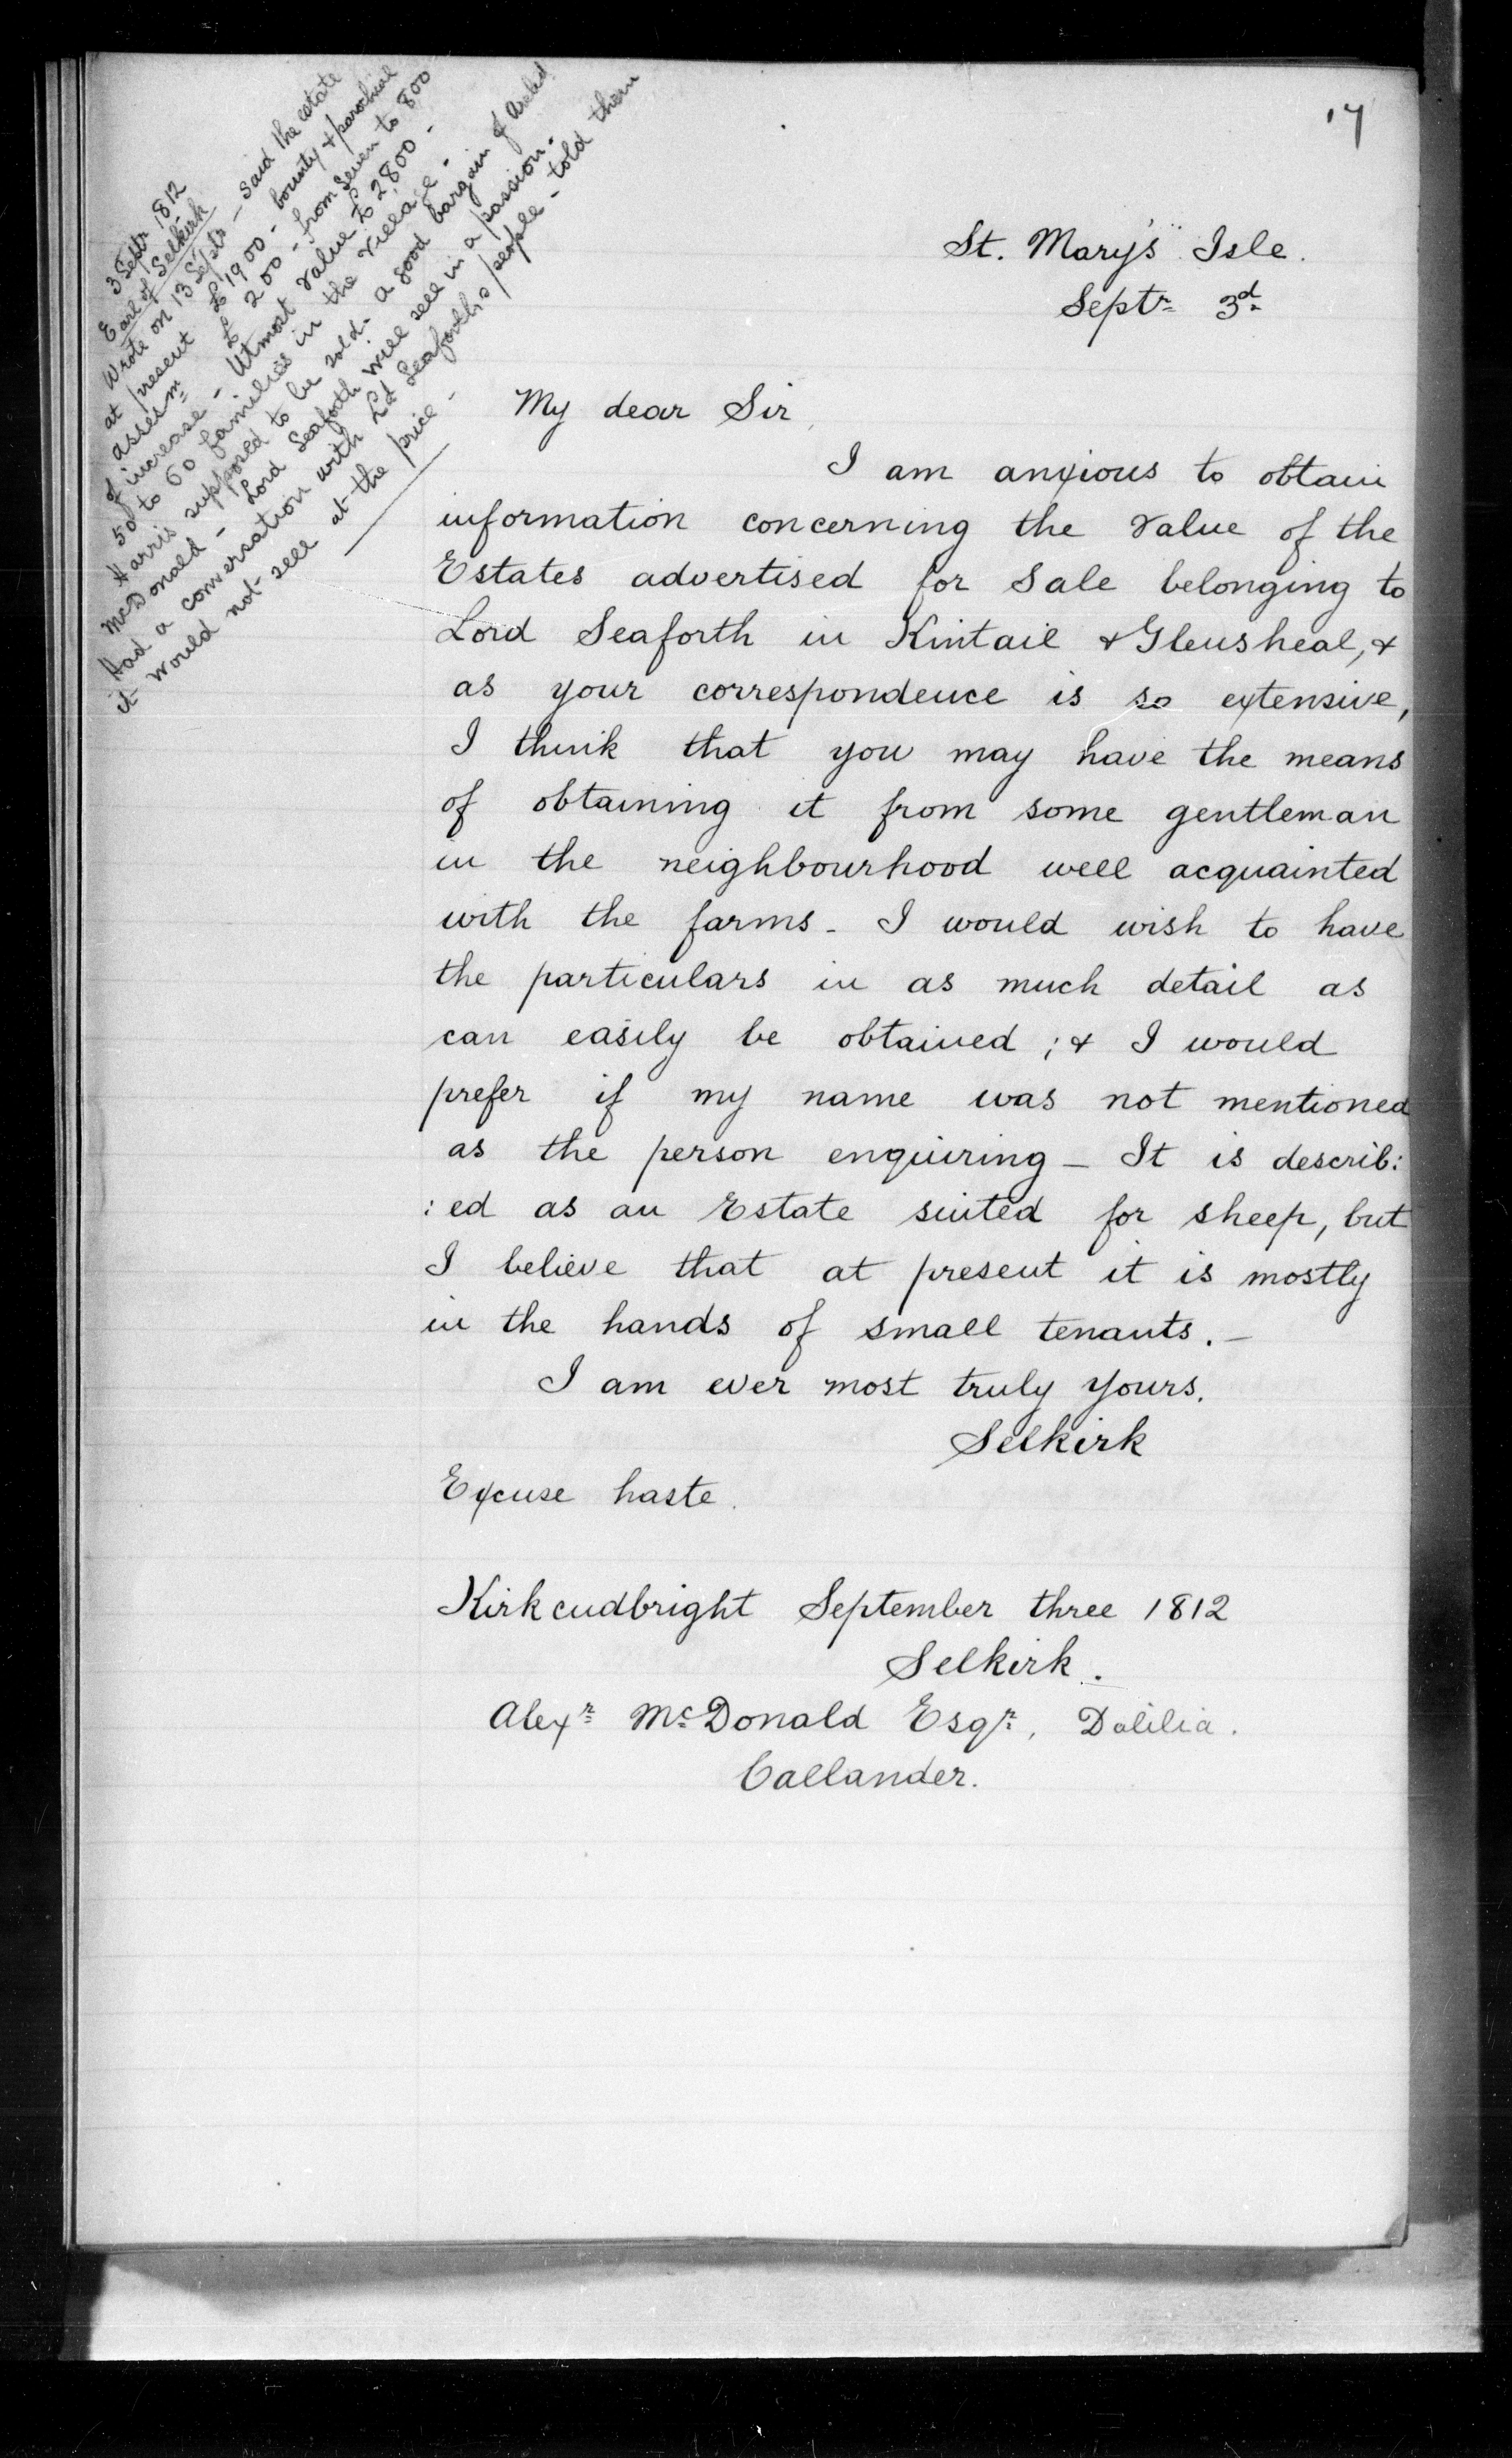 17
3 Septr 1812
Earl of Selkirk
Wrote on 13 Septr - Said the estate
at present £1900 - bounty & parochial
assesm £200 - from seven to 800
of increase - Utmost value £2800 -
50 to 60 families in the village -
Harris supposed to be sold - a good bargain of Arch'd
McDonald - Lord Seaforth will sell in a passion -
Had a conversation with Ld Seaforth's people - told them
it would not sell at the price -
St. Mary's Isle.
Septr 3d
My dear Sir,
I am anxious to obtain
information concerning the value of the
Estates advertised for sale belonging to
Lord Seaforth in Kintail & Glensheal, &
as your correspondence is so extensive,
I think that you may have the means
of obtaining it from some gentleman
in the neighbourhood well acquainted
with the farms - I would wish to have
the particulars in as much detail as
can easily be obtained ; & I would
prefer if my name was not mentioned
as the person enquiring - It is describ:
:ed as an Estate suited for sheep, but
I believe that at present it is mostly
in the hands of small tenants. -
I am ever most truly yours.
Selkirk
Excuse haste.
Kirkcudbright September three 1812
Selkirk.
Alexr McDonald Esqr, Dalilia.
Callander.